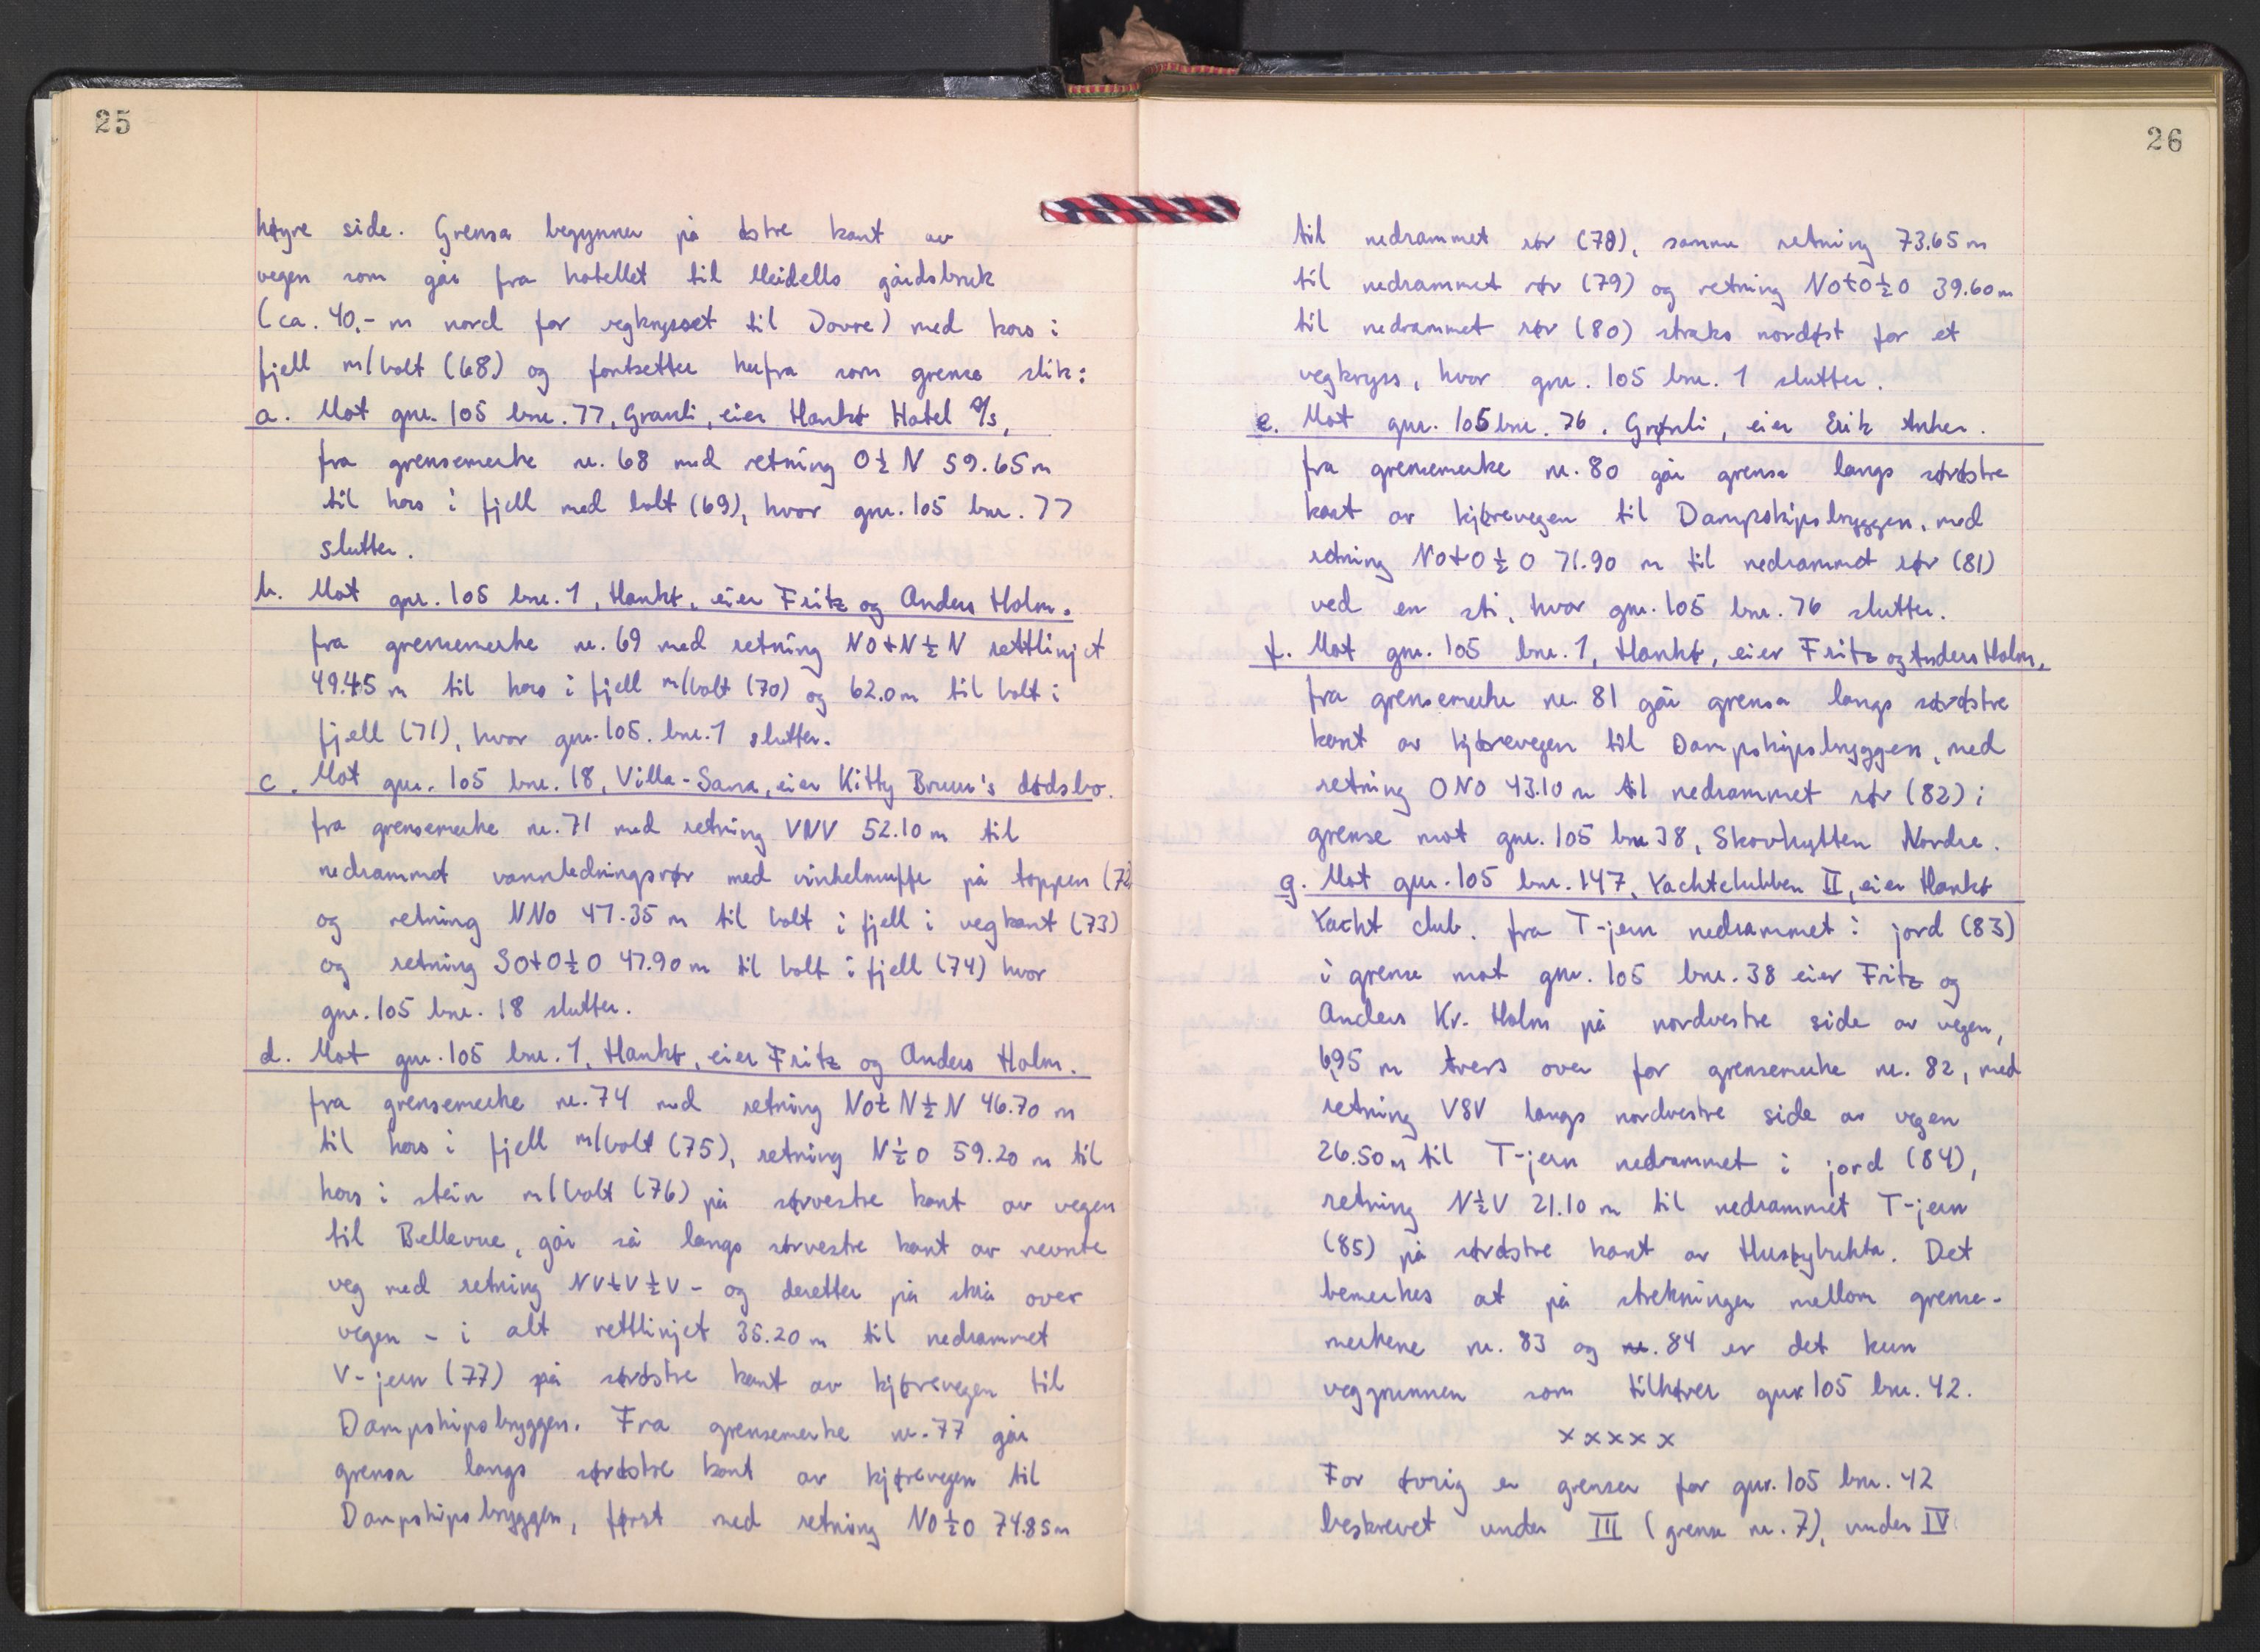 25
høyre side. Grensa begynner på østre kant av
vegen som går fra hotellet til Meidells gårdsbruk
(ca. 40,- m nord for vegkrysset til Dovre) med kors i
fjell m/bolt (68) og fortsetter herfra som grense slik:
a. Mot gnr. 105 bnr. 77, Granli, eier Hankø Hotel A/S,
fra grensemerke nr. 68 med retning O½N 59.65 m
til kors i fjell med bolt (69), hvor gnr. 105 bnr. 77
slutter.
b. Mot gnr. 105 bnr. 1, Hankø, eier Fritz og Anders Holm.
fra grensemerke nr. 69 med retning NOtN½N rettlinjet
49.45 m til kors i fjell m/bolt (70) og 62.0 m til bolt i
fjell (71), hvor gnr. 105. bnr. 1 slutter.
c. Mot gnr. 105 bnr. 18, Villa-Sana, eier Kitty Bruun's dødsbo.
fra grensemerke nr. 71 med retning VNV 52.10 m til
nedrammet vannledningsrør med vinkelmuffe på toppen (72
og retning NNO 47.35 m til bolt i fjell i vegkant (73)
og retning SOtO½O 47.90 m til bolt i fjell (74) hvor
gnr. 105 bnr. 18 slutter.
d. Mot gnr. 105 bnr. 1, Hankø, eier Fritz og Anders Holm.
fra grensemerke nr. 74 med retning NOtN½N 46.70 m
til kors i fjell m/bolt (75), retning N½O 59.20 m til
kors i stein m/bolt (76) på sørvestre kant av vegen
til Bellevue, går så langs sørvestre kant av nevnte
veg med retning NVtV½V - og deretter på skrå over
vegen - i alt rettlinjet 35.20 m til nedrammet
V-jern (77) på sørøstre kant av kjørevegen til
Dampskipsbryggen. Fra grensemerke nr. 77 går
grensa langs sørøstre kant av kjørevegen til
Dampskipsbryggen, først med retning NO½O 74.85 m
26
til nedrammet rør (78), samme retning 73.65 m
til nedrammet rør (79) og retning NOtO½O 39.60 m
til nedrammet rør (80) straks nordøst for et
vegkryss, hvor gnr. 105 bnr. 1 slutter.
e. Mot gnr. 105 bnr. 76, Grønli, eier Erik Anker.
fra grensemerke nr. 80 går grensa langs sørøstre
kant av kjørevegen til Dampskipsbryggen, med
retning NOtO½O 71.90 m til nedrammet rør (81)
ved en sti, hvor gnr. 105 bnr. 76 slutter.
f. Mot gnr. 105 bnr. 1, Hankø, eier Fritz og Anders Holm,
fra grensemerke nr. 81 går grensa langs sørøstre
kant av kjørevegen til Dampskipsbryggen, med
retning ONO 43.10 m til nedrammet rør (82) i
grense mot gnr. 105 bnr 38, Skovhytten Nordre.
g. Mot gnr. 105 bnr. 147, Yachtclubben II, eier Hankø
Yacht club. fra T-jern nedrammet i jord (83)
i grense mot gnr. 105 bnr. 38 eier Fritz og
Anders Kr. Holm på nordvestre side av vegen,
6,95 m tvers over for grensemerke nr. 82, med
retning VSV langs nordvestre side av vegen
26.50 m til T-jern nedrammet i jord (84),
retning N½V 21.10 m til nedrammet T-jern
(85) på sørøstre kant av Husøybukta. Det
bemerkes at på strekningen mellom grense-
merkene nr. 83 og nr. 84 er det kun
veggrunnen som tilhører gnr 105 bnr. 42.
x x x x x
For øvrig er grenser for gnr. 105 bnr. 42
beskrevet under III (grense nr. 7), under IV